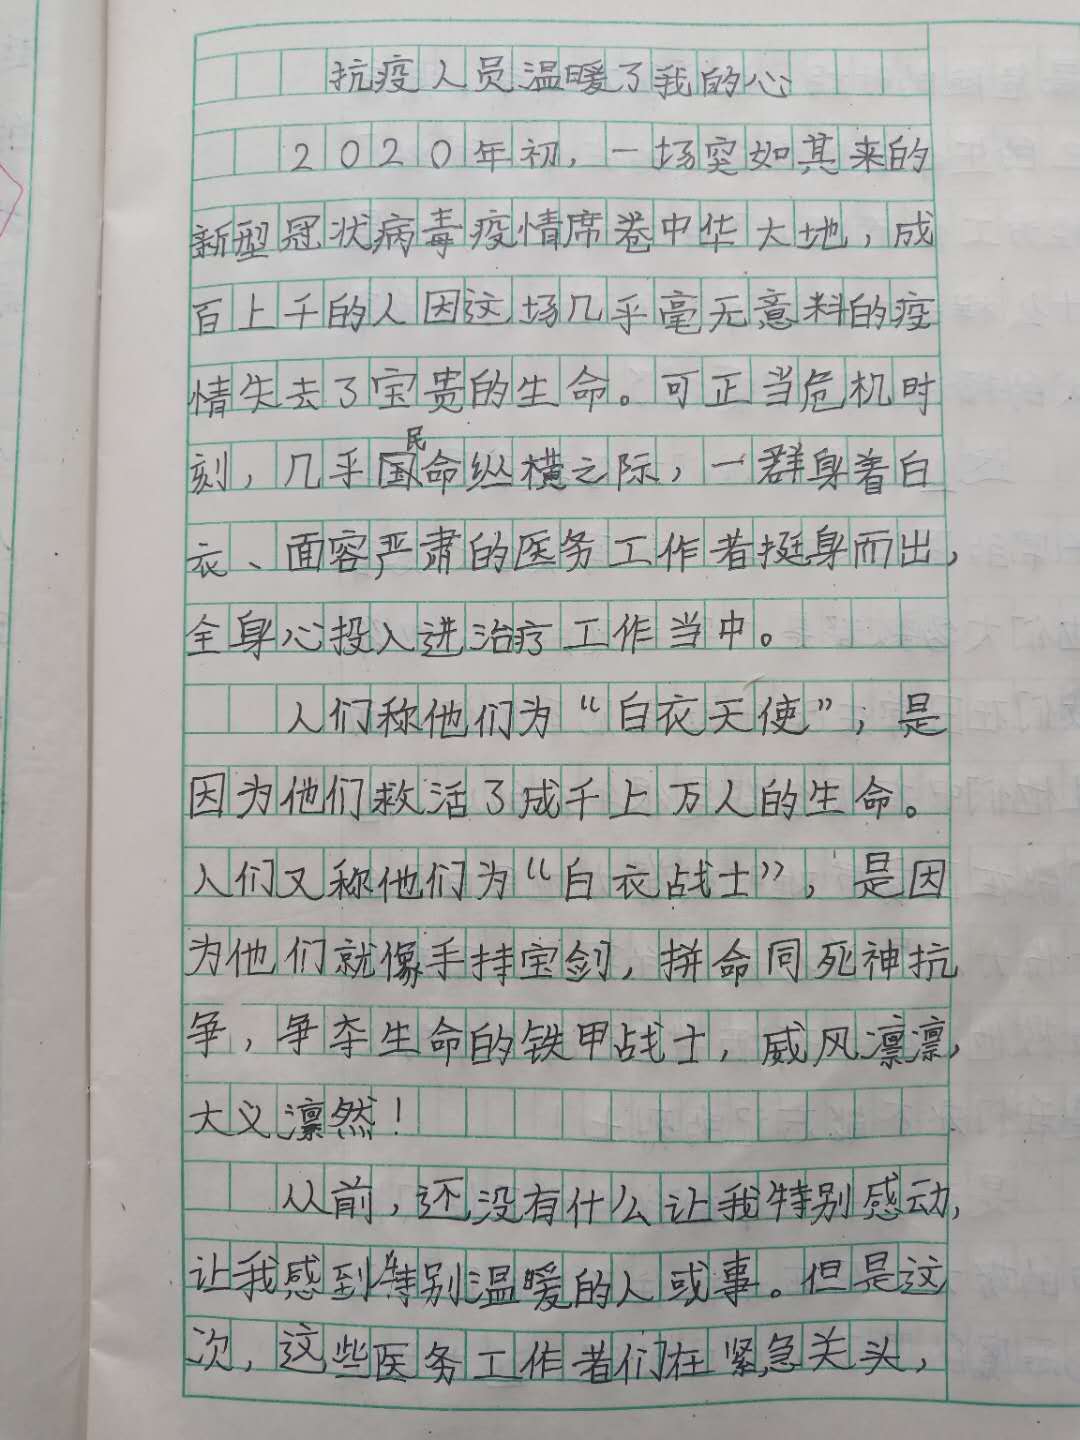 抗疫人员温暖了我的心
2020年初，一场突如其来的
新型冠状病毒疫情席卷中华大地，成
百上千的人因这场几乎毫无意料的疫
情失去了宝贵的生命。可正当危机时
刻，几乎国民命纵横之际，一群身着白
衣、面容严肃的医务工作者挺身而出，
全身心投入进治疗工作当中。
人们称他们为“白衣天使”，是
因为他们救活了成千上万人的生命。
人们又称他们为“白衣战士”，是因
为他们就像手持宝剑，拼命同死神抗
争，争夺生命的铁甲战士，威风凛凛，
大义凛然！
从前，还没有什么让我特别感动，
让我感到特别温暖的人或事。但是这
次，这些医务工作者们在紧急关头，